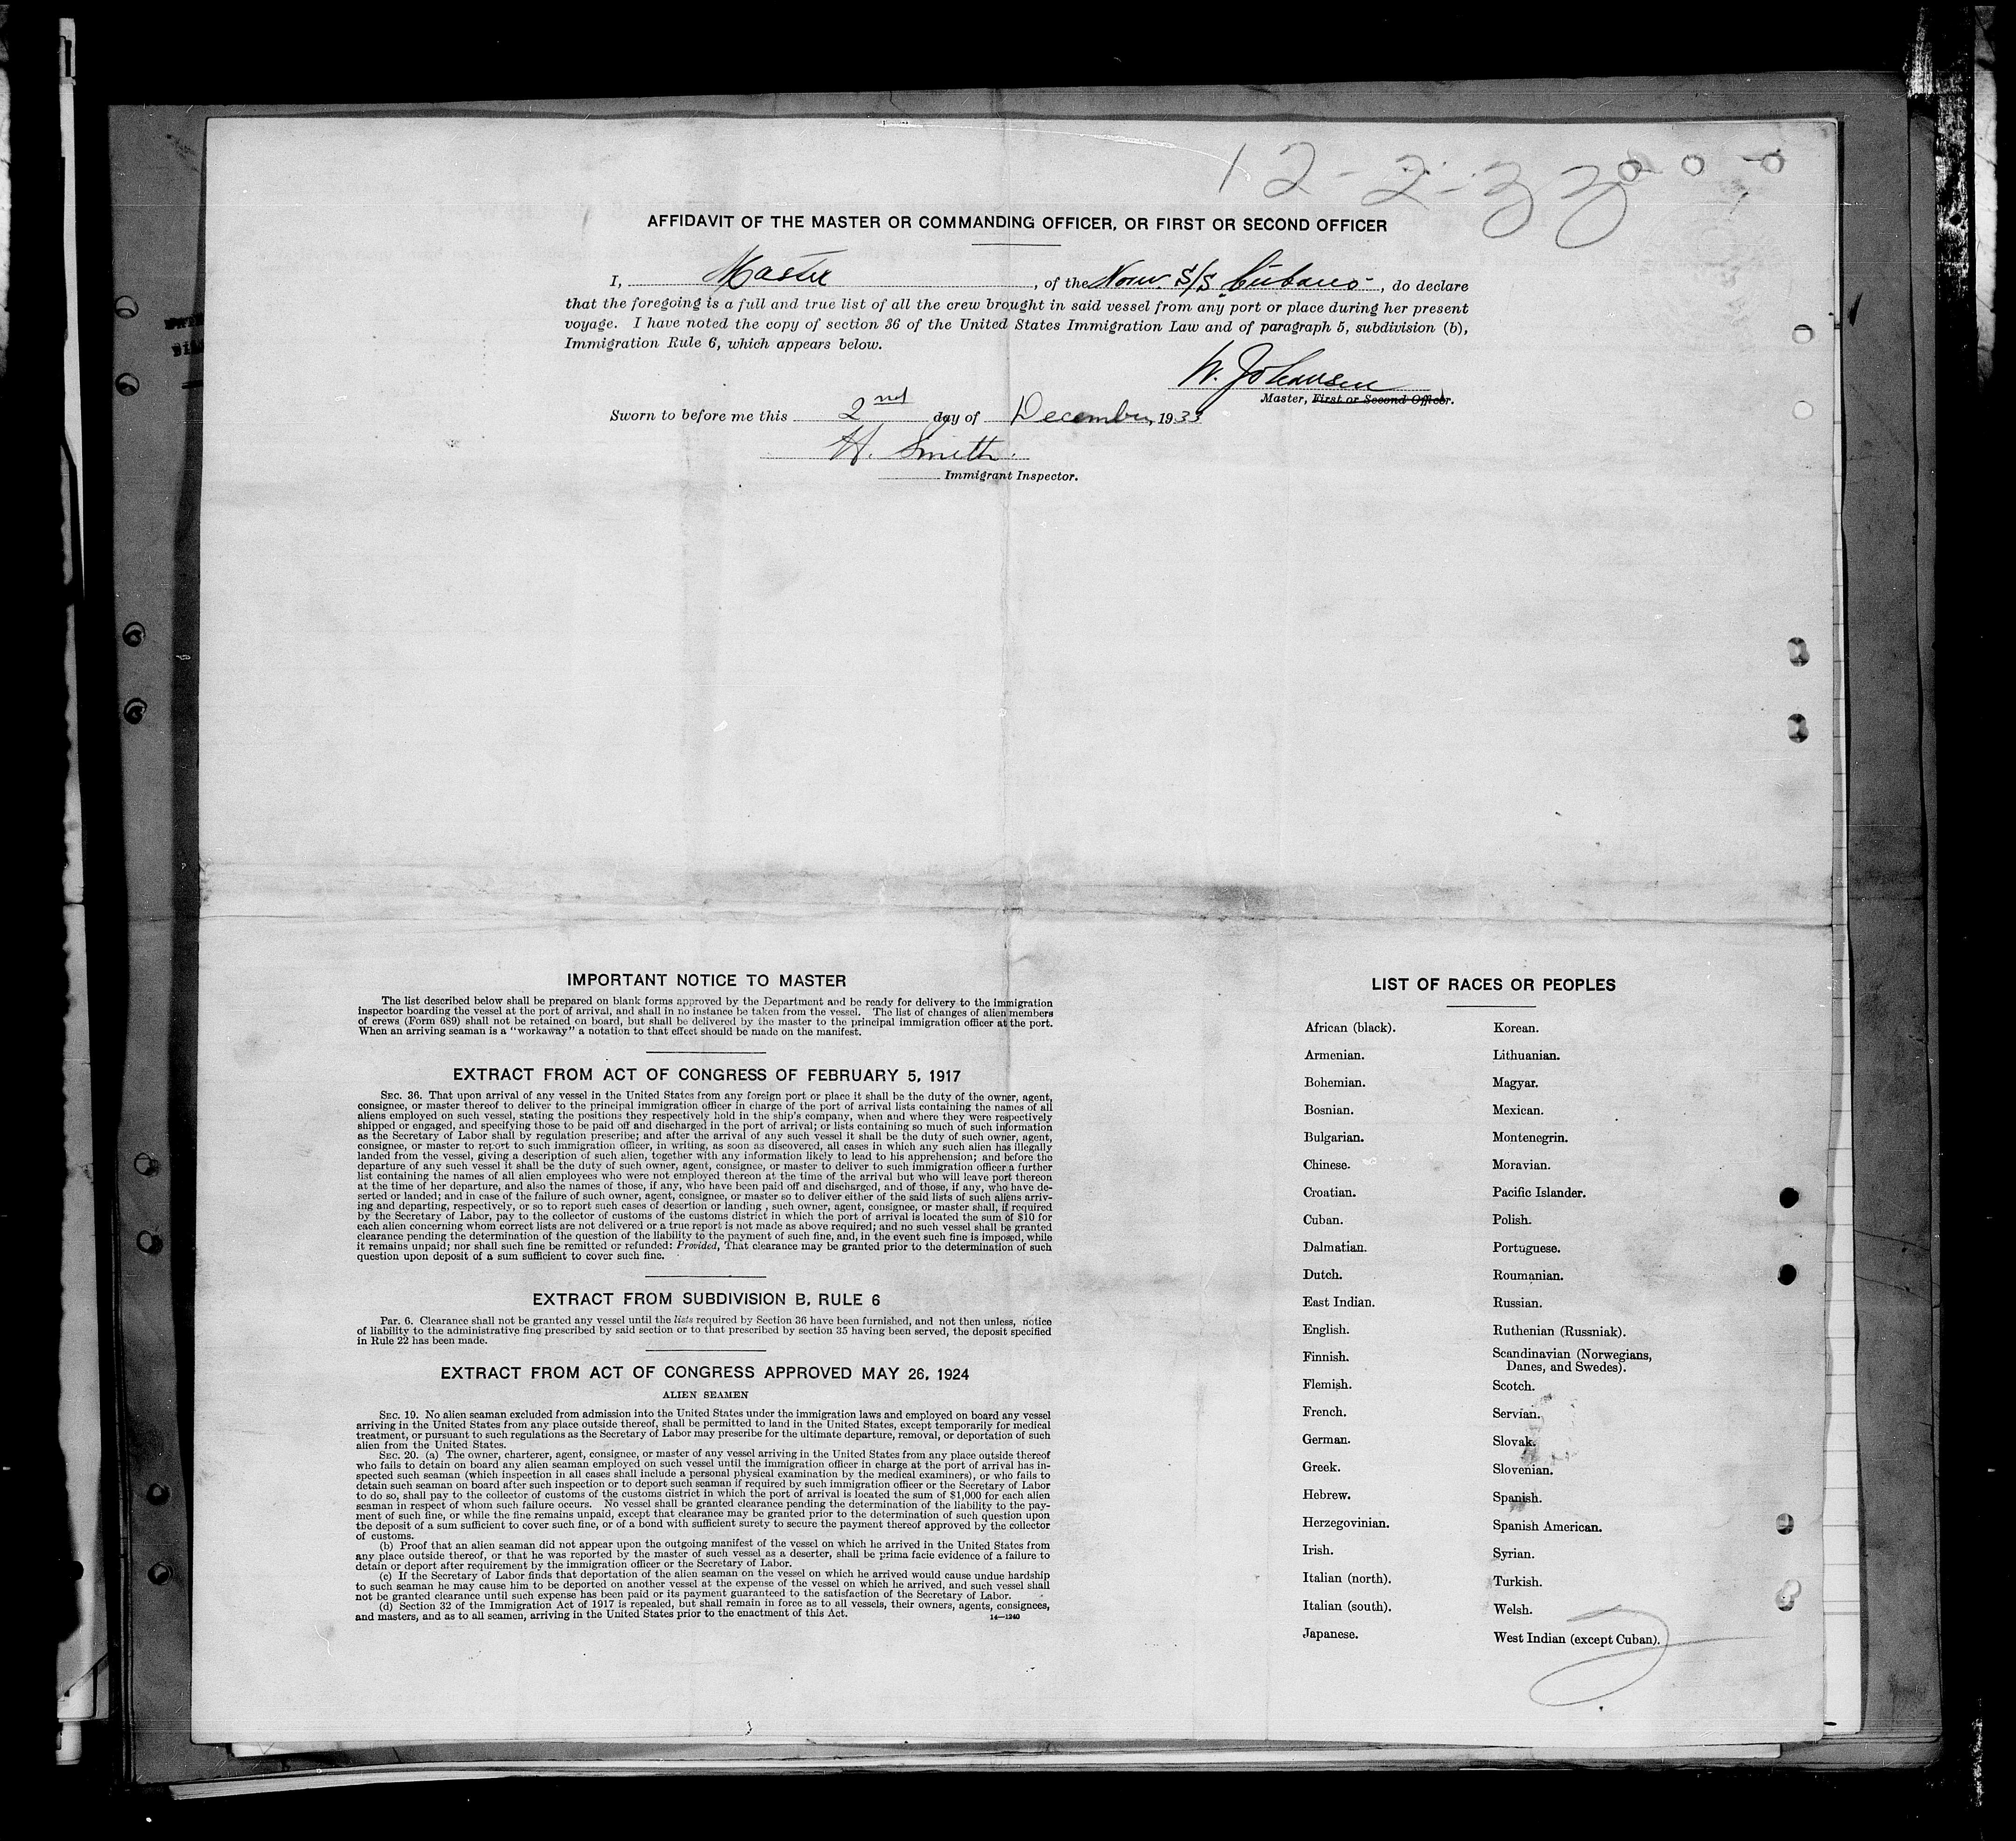 12-2-33
AFFIDAVIT OF THE MASTER OR COMMANDING OFFICER, OR FIRST OR SECOND OFFICER
I, Master, of the Norw. S/S "Cubano", do declare
that the foregoing is a full and true list of all the crew brought in said vessel from any port or place during her present
voyage. I have noted the copy of section 36 of the United States Immigration Law and of paragraph 5, subdivision (b),
Immigration Rule 6, which appears below.
Johansen
Master, First or Second Officer.
Sworn to before me this 2nd day of December, 1933
H. Smith.
Immigrant Inspector.
IMPORTANT NOTICE TO MASTER
The list described below shall be prepared on blank forms approved by the Department and be ready for delivery to the immigration
inspector boarding the vessel at the port of arrival, and shall in no instance be taken from the vessel. The list of changes of alien members
of crews (Form 689) shall not be retained on board, but shall be delivered by the master to the principal immigration officer at the port.
When an arriving seaman is a "workaway" a notation to that effect should be made on the manifest.
EXTRACT FROM ACT OF CONGRESS OF FEBRUARY 5, 1917
SEC. 36. That upon arrival of any vessel in the United States from any foreign port or place it shall be the duty of the owner, agent,
consignee, or master thereof to deliver to the principal immigration officer in charge of the port of arrival lists containing the names of all
aliens employed on such vessel, stating the positions they respectively hold in the ship's company, when and where they were respectively
shipped or engaged, and specifying those to be paid off and discharged in the port of arrival; or lists containing so much of such information
as the Secretary of Labor shall by regulation prescribe; and after the arrival of any such vessel it shall be the duty of such owner, agent,
consignee, or master to report to such immigration officer, in writing, as soon as discovered, all cases in which any such alien has illegally
landed from the vessel, giving a description of such alien, together with any information likely to lead to his apprehension; and before the
departure of any such vessel it shall be the duty of such owner, agent, consignee, or master to deliver to such immigration officer a further
list containing the names of all alien employees who were not employed thereon at the time of the arrival but who will leave port thereon
at the time of her departure, and also the names of those, if any, who have been paid off and discharged, and of those, if any, who have de-
serted or landed; and in case of the failure of such owner, agent, consignee, or master so to deliver either of the said lists of such aliens arriv-
ing and departing, respectively, or so to report such cases of desertion or landing , such owner, agent, consignee, or master shall, if required
by the Secretary of Labor, pay to the collector of customs of the customs district in which the port of arrival is located the sum of $10 for
each alien concerning whom correct lists are not delivered or a true report is not made as above required; and no such vessel shall be granted
clearance pending the determination of the question of the liability to the payment of such fine, and, in the event such fine is imposed, while
it remains unpaid; nor shall such fine be remitted or refunded: Provided, That clearance may be granted prior to the determination of such
question upon deposit of a sum sufficient to cover such fine.
EXTRACT FROM SUBDIVISION B, RULE 6
PAR. 6. Clearance shall not be granted any vessel until the lists required by Section 36 have been furnished, and not then unless, notice
of liability to the administrative fine prescribed by said section or to that prescribed by section 35 having been served, the deposit specified
in Rule 22 has been made.
EXTRACT FROM ACT OF CONGRESS APPROVED MAY 26, 1924
ALIEN SEAMEN
SEC. 19. No alien seaman excluded from admission into the United States under the immigration laws and employed on board any vessel
arriving in the United States from any place outside thereof, shall be permitted to land in the United States, except temporarily for medical
treatment, or pursuant to such regulations as the Secretary of Labor may prescribe for the ultimate departure, removal, or deportation of such
alien from the United States.
SEC. 20. (a) The owner, charterer, agent, consignee, or master of any vessel arriving in the United States from any place outside thereof
who fails to detain on board any alien seaman employed on such vessel until the immigration officer in charge at the port of arrival has in-
spected such seaman (which inspection in all cases shall include a personal physical examination by the medical examiners), or who fails to
detain such seaman on board after such inspection or to deport such seaman if required by such immigration officer or the Secretary of Labor
to do so, shall pay to the collector of customs of the customs district in which the port of arrival is located the sum of $1,000 for each alien
seaman in respect of whom such failure occurs. No vessel shall be granted clearance pending the determination of the liability to the pay-
ment of such fine, or while the fine remains unpaid, except that clearance may be granted prior to the determination of such question upon
the deposit of a sum sufficient to cover such fine, or of a bond with sufficient surety to secure the payment thereof approved by the collector
of customs.
(b) Proof that an alien seaman did not appear upon the outgoing manifest of the vessel on which he arrived in the United States from
any place outside thereof, or that he was reported by the master of such vessel as a deserter, shall be prima facie evidence of a failure to
detain or deport after requirement by the immigration officer or the Secretary of Labor.
(c) If the Secretary of Labor finds that deportation of the alien seaman on the vessel on which he arrived would cause undue hardship
to such seaman he may cause him to be deported on another vessel at the expense of the vessel on which he arrived, and such vessel shall
not be granted clearance until such expense has been paid or its payment guaranteed to the satisfaction of the Secretary of Labor.
(d) Section 32 of the Immigration Act of 1917 is repealed, but shall remain in force as to all vessels, their owners, agents, consignees,
and masters, and as to all seamen, arriving in the United States prior to the enactment of this Act.
14—1240
LIST OF RACES OR PEOPLES
African (black).
Armenian.
Bohemian.
Bosnian.
Bulgarian.
Chinese.
Croatian.
Cuban.
Dalmatian.
Dutch.
East Indian.
English.
Finnish.
Flemish.
French.
German.
Greek.
Hebrew.
Herzegovinian.
Irish.
Italian (north).
Italian (south).
Japanese.
Korean.
Lithuanian.
Magyar.
Mexican.
Montenegrin.
Moravian.
Pacific Islander.
Polish.
Portuguese.
Roumanian.
Russian.
Ruthenian (Russniak).
Scandinavian (Norwegians,
Danes, and Swedes).
Scotch.
Servian.
Slovak.
Slovenian.
Spanish.
Spanish American.
Syrian.
Turkish.
Welsh.
West Indian (except Cuban).